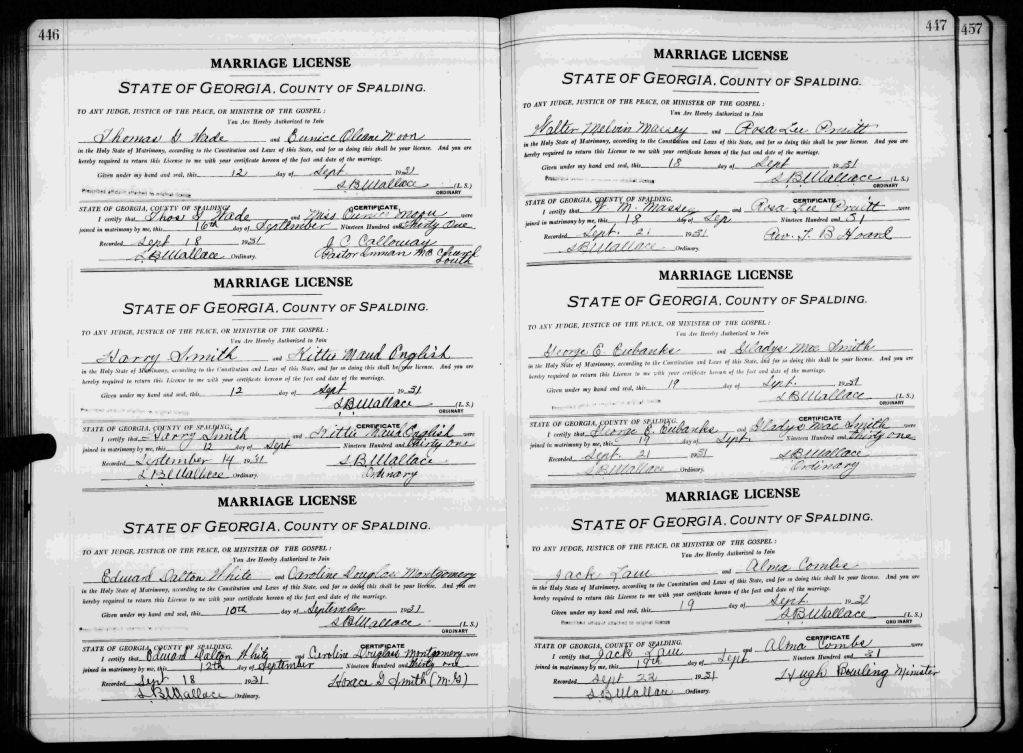 446
MARRIAGE LICENSE
STATE OF GEORGIA, COUNTY OF SPALDING.
TO ANY JUDGE, JUSTICE OF THE PEACE, OR MINISTER OF THE GOSPEL:
You Are Hereby Authorized to Join
Thomas G Wade and Eunice Oleane Moon
in the Holy State of Matrimony, according to the Constitution and Laws of this State, and for so doing this shall be your license. And you are
hereby required to return this License to me with your certificate hereon of the fact and date of the marriage.
Given under my hand and seal, this 12 day of Sept 1931
Prescribed affidavit attached to original license
S B Wallace (L. S.)
ORDINARY
STATE OF GEORGIA, COUNTY OF SPALDING. CERTIFICATE
I certify that Thos G Wade and Miss Eunice Moon were
joined in matrimony by me, this 16th day of September Nineteen Hundred and Thirty One
Recorded Sept 18 1931 J C Calloway
S B Wallace Ordinary. Pastor Inman M.E Church
South
MARRIAGE LICENSE
STATE OF GEORGIA, COUNTY OF SPALDING.
TO ANY JUDGE, JUSTICE OF THE PEACE, OR MINISTER OF THE GOSPEL:
You Are Hereby Authorized to Join
Harry Smith and Kittie Maud English
in the Holy State of Matrimony, according to the Constitution and Laws of this State, and for so doing this shall be your license. And you are
hereby required to return this License to me with your certificate hereon of the fact and date of the marriage.
Given under my hand and seal, this 12 day of Sept 1931
S B Wallace (L. S.)
ORDINARY
STATE OF GEORGIA, COUNTY OF SPALDING. CERTIFICATE
I certify that Harry Smith and Kittie Maud English were
joined in matrimony by me, this 12 day of Sept Nineteen Hundred and thirty one
Recorded September 14 1931 S B Wallace
S B Wallace Ordinary. Ordinary
MARRIAGE LICENSE
STATE OF GEORGIA, COUNTY OF SPALDING.
TO ANY JUDGE, JUSTICE OF THE PEACE, OR MINISTER OF THE GOSPEL:
You Are Hereby Authorized to Join
Edward Dalton White and Caroline Douglass Montgomery
in the Holy State of Matrimony, according to the Constitution and Laws of this State, and for so doing this shall be your license. And you are
hereby required to return this License to me with your certificate hereon of the fact and date of the marriage.
Given under my hand and seal, this 10th day of September 1931
S B Wallace (L. S.)
ORDINARY
STATE OF GEORGIA, COUNTY OF SPALDING. CERTIFICATE
I certify that Edward Dalton White and Caroline Douglass Montgomery were
joined in matrimony by me, this 12th day of September Nineteen Hundred and thirty one
Recorded Sept 18 1931 Horace S Smith (M.G)
S B Wallace Ordinary.
447 457
MARRIAGE LICENSE
STATE OF GEORGIA, COUNTY OF SPALDING.
TO ANY JUDGE, JUSTICE OF THE PEACE, OR MINISTER OF THE GOSPEL:
You Are Hereby Authorized to Join
Walter Melvin Massey and Rosa Lee Pruitt
in the Holy State of Matrimony, according to the Constitution and Laws of this State, and for so doing this shall be your license. And you are
hereby required to return this License to me with your certificate hereon of the fact and date of the marriage.
Given under my hand and seal, this 18 day of Sept 1931
Prescribed affidavit attached to original license
S B Wallace (L. S.)
ORDINARY
STATE OF GEORGIA, COUNTY OF SPALDING. CERTIFICATE
I certify that W. M. Massey and Rosa Lee Pruitt were
joined in matrimony by me, this 18 day of Sep Nineteen Hundred and 31
Recorded Sept. 21 1931 Rev. T. B Hoard
S B Wallace Ordinary.
MARRIAGE LICENSE
STATE OF GEORGIA, COUNTY OF SPALDING.
TO ANY JUDGE, JUSTICE OF THE PEACE, OR MINISTER OF THE GOSPEL:
You Are Hereby Authorized to Join
George E Eubanks and Gladys Mae Smith
in the Holy State of Matrimony, according to the Constitution and Laws of this State, and for so doing this shall be your license. And you are
hereby required to return this License to me with your certificate hereon of the fact and date of the marriage.
Given under my hand and seal, this 19 day of Sept. 1931
S B Wallace (L. S.)
ORDINARY
STATE OF GEORGIA, COUNTY OF SPALDING. CERTIFICATE
I certify that George E. Eubanks and Gladys Mae Smith were
joined in matrimony by me, this 19 day of Sept. Nineteen Hundred and thirty one
Recorded Sept. 21 1931 S B Wallace
S B Wallace Ordinary. Ordinary
MARRIAGE LICENSE
STATE OF GEORGIA, COUNTY OF SPALDING.
TO ANY JUDGE, JUSTICE OF THE PEACE, OR MINISTER OF THE GOSPEL:
You Are Hereby Authorized to Join
Jack and Alma Combs
in the Holy State of Matrimony, according to the Constitution and Laws of this State, and for so doing this shall be your license. And you are
hereby required to return this License to me with your certificate hereon of the fact and date of the marriage.
Given under my hand and seal, this 19 day of Sept. 1931
Prescribed affidavit attached to original license
S B Wallace (L. S.)
ORDINARY
STATE OF GEORGIA, COUNTY OF SPALDING. CERTIFICATE
I certify that Jack and Alma Combs were
joined in matrimony by me, this 19th day of Sept Nineteen Hundred and 31
Recorded Sept 22 1931 Hugh Bowling Minister
S B Wallace Ordinary.